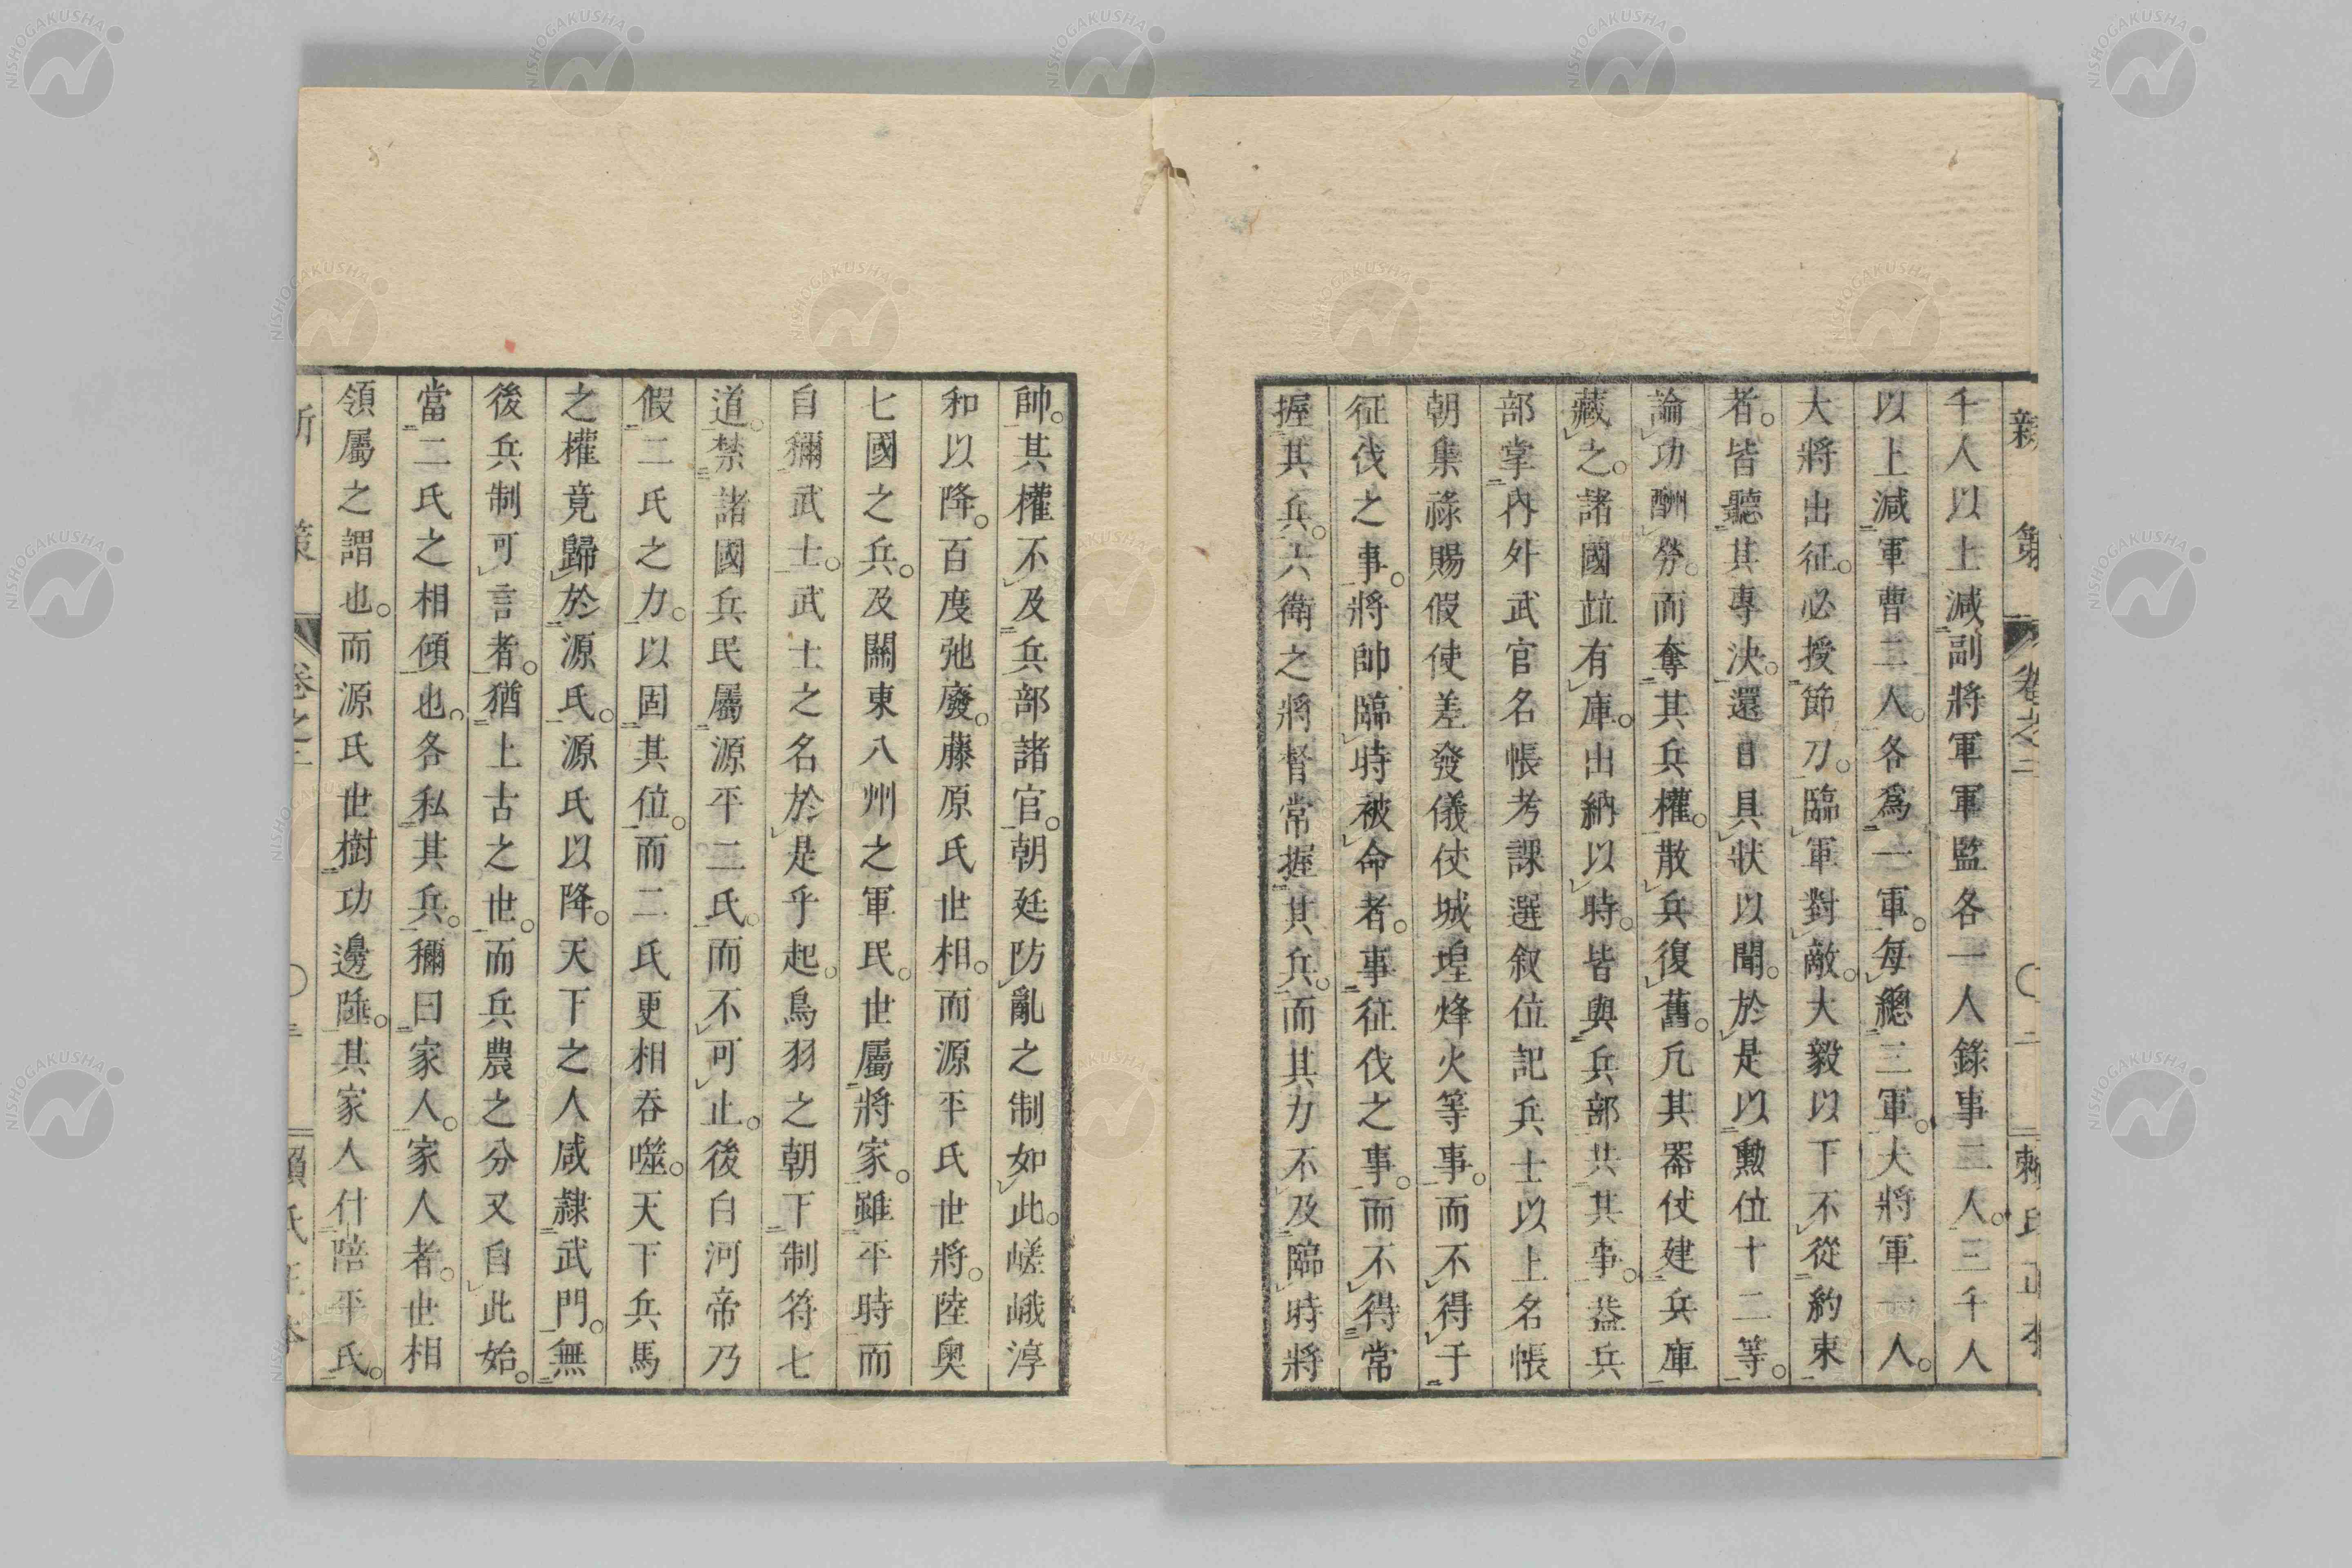 新策 卷之二 〇二 賴氏正本
千人以上減副將軍軍監各一人錄事二人。三千人
以上減軍曹二人。各爲一軍。每總三軍。大將軍一人。
大將出征。必授節刀。臨軍對敵。大毅以下不從約束
者。皆聽其專決。還日具狀以聞。於是以勲位十二等。
論功酬勞。而奪其兵權。散兵復舊。凡其器仗建兵庫
藏之。諸國竝有庫。出納以時。皆與兵部共其事。葢兵
部掌內外武官名帳考課選叙位記兵士以上名帳
朝集祿賜假使差發儀仗城堭烽火等事。而不得于
征伐之事。將帥臨時被命者。事征伐之事。而不得常
握其兵。六衛之將督常握其兵。而其力不及臨時將
帥。其權不及兵部諸官。朝廷防亂之制如此。嵯峨淳
和以降。百度弛廢。藤原氏世相。而源平氏世將。陸奧
七國之兵。及關東八州之軍民。世屬將家。雖平時而
自稱武士。武士之名於是乎起。鳥羽之朝下制符七
道。禁諸國兵民屬源平二氏。而不可止。後白河帝乃
假二氏之力。以固其位。而二氏更相吞噬。天下兵馬
之權竟歸於源氏。源氏以降。天下之人咸隸武門。無
後兵制可言者。猶上古之世。而兵農之分又自此始。
當二氏之相傾也。各私其兵。稱曰家人。家人者。世相
領屬之謂也。而源氏世樹功邊陲。其家人什陪平氏。
卷之二